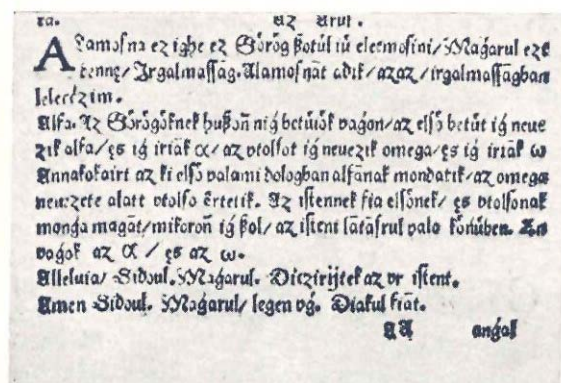 ra. Az Arut .
Alamosna ez ighe ez Görög ßotúl iú eleemosini/Maǵarul ezt
tenne/ Irgalmassag. Alamosnāt adik/azaz/irgalmassāgban
lelecżim.
Alfa. Az Görögöknek hußoñ níg betúiök vagon/az elsö betüt íǵ neue
zik alfa/ęs íǵ iriāk α/az vtolsot íǵ neuezik omega/ęs íǵ iriāk ω
Annakokairt az ki elsö valami dologban alfānak mondatik/az omega
neuezete alatt vtolso értetik. Az istennek fia elsönek/ ęs vtolsonak
monǵa maǵāt/mikoroñ íǵ ßol/az isteni lātāsrul valo kóńúben. En
vaǵok az α / ęs az ω.
Alleluia/ Sidoul. Maǵarul. Dicżirijtek az vr istent.
Amen Sidoul. Maǵarul/ legen vǵ. Diakul fiāt.
AA anǵal